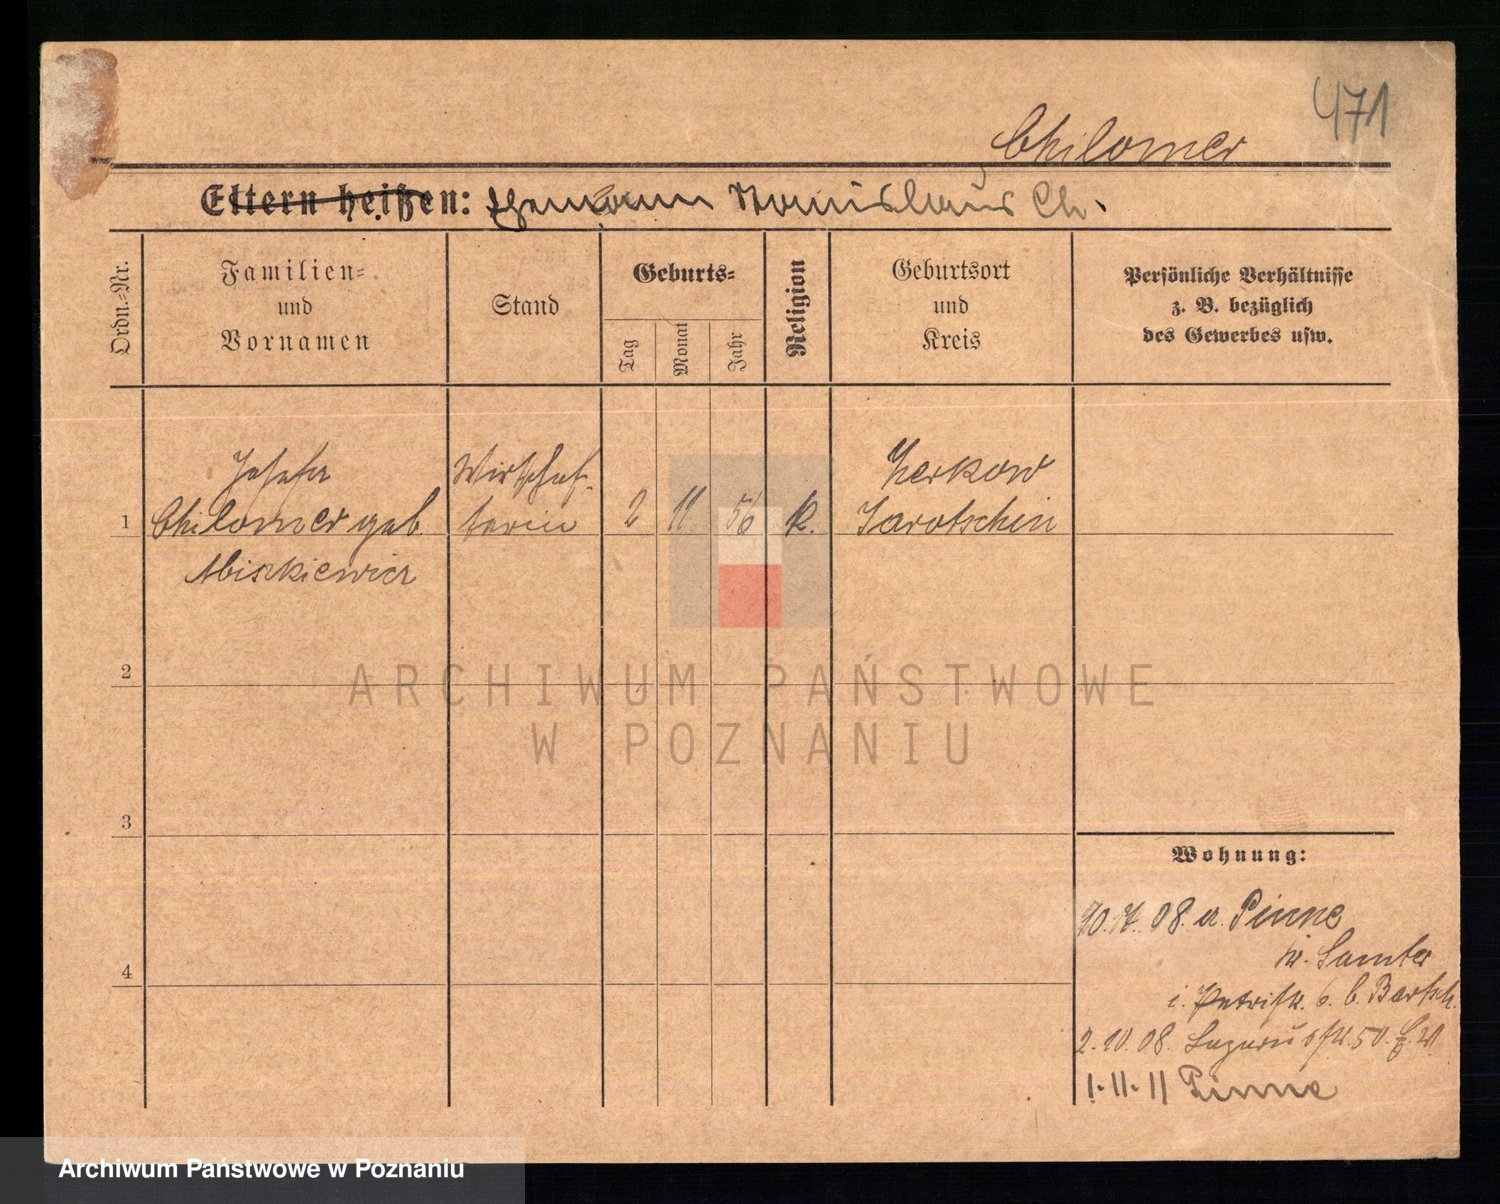 471
Chilomer
Eltern heißen: Ehemann Stanislaus Ch.
Ordn.=Nr.
Familien=
und
Vornamen
Stand
Geburts=
Tag
Monat
Jahr
Religion
Geburtsort
und
Kreis
Persönliche Verhältnisse
z. B. bezüglich
des Gewerbes usw.
Josefa
1 Chilomer geb.
Wirtschaf-
terin
2
11
56
k.
Zerkow
Jarotschin
2
3
4
ARCHIWUM PAŃSTWOWE
W POZNANIU
Wohnung:
08. Pinne
Kr. Samter
i. Petristr. 6. b. Bartsch.
2. 10. 08. Lazarusstr. 50.
1.11.11 Pinne
Archiwum Państwowe w Poznaniu